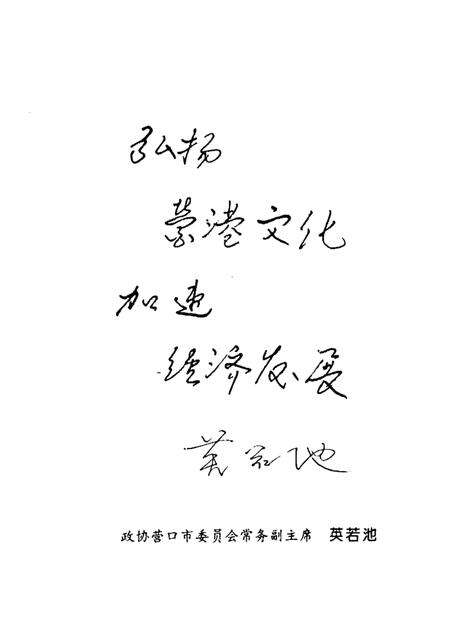 弘扬
营港文化
加速
经济发展
英若池
政协营口市委员会常务副主席 英若池